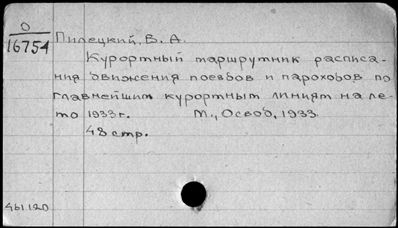 О
16754
Пилецкий, В. А.
Курортный маршрутник расписа-
ния движения поездов и пароходов по
главнейшим курортным линиям на ле-
то 1933 г. М., Освод, 1933.
48 стр.
461120